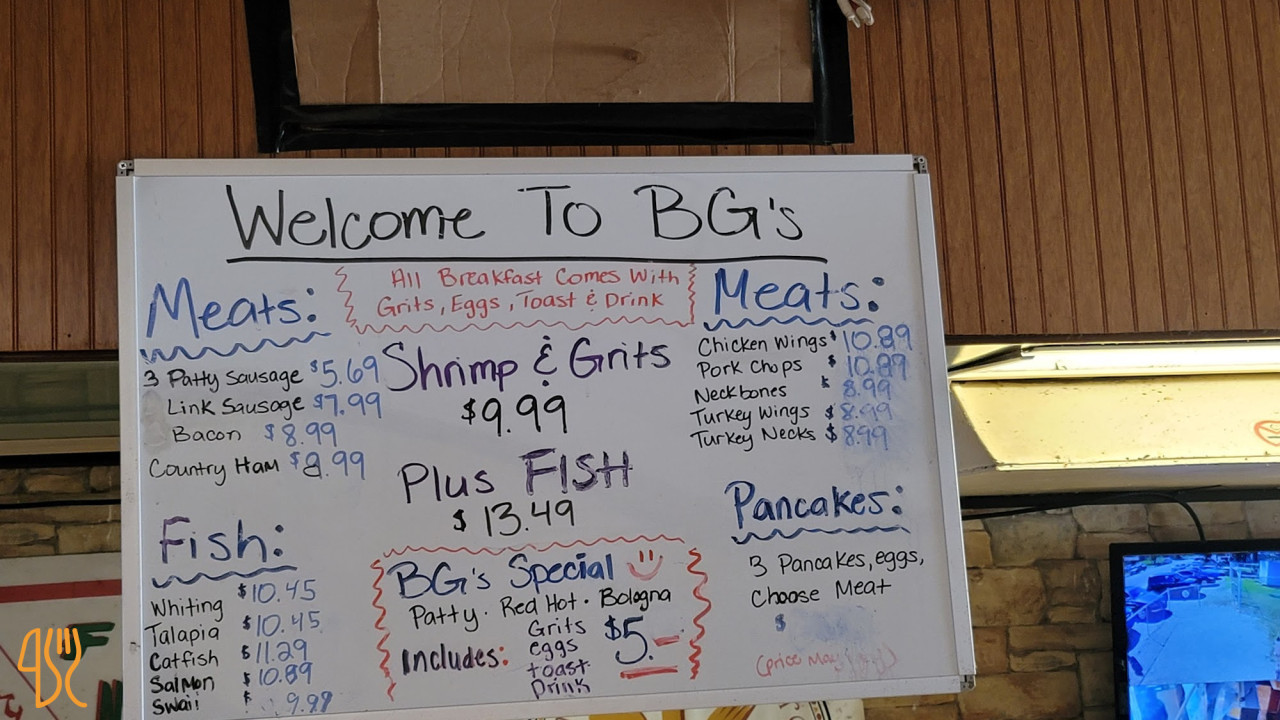 Welcome To BG's
All Breakfast Comes With
Grits, Eggs, Toast & Drink
Meats:
3 Patty Sausage $5.69
Link Sausage $7.99
Bacon $8.99
Country Ham $8.99
Fish:
Whiting $10.45
Talapia $10.45
Catfish $11.29
Salmon $10.89
Swaii $ 9.99
Shrimp & Grits
$9.99
Plus FISH
$13.49
BG's Special
Patty · Red Hot · Bologna
Includes:
Grits
eggs
toast
Drink
$5.—
Meats:
Chicken Wings $10.89
Pork Chops $10.89
Neckbones $8.99
Turkey Wings $8.99
Turkey Necks $8.99
Pancakes:
3 Pancakes, eggs,
Choose Meat
$
(price may